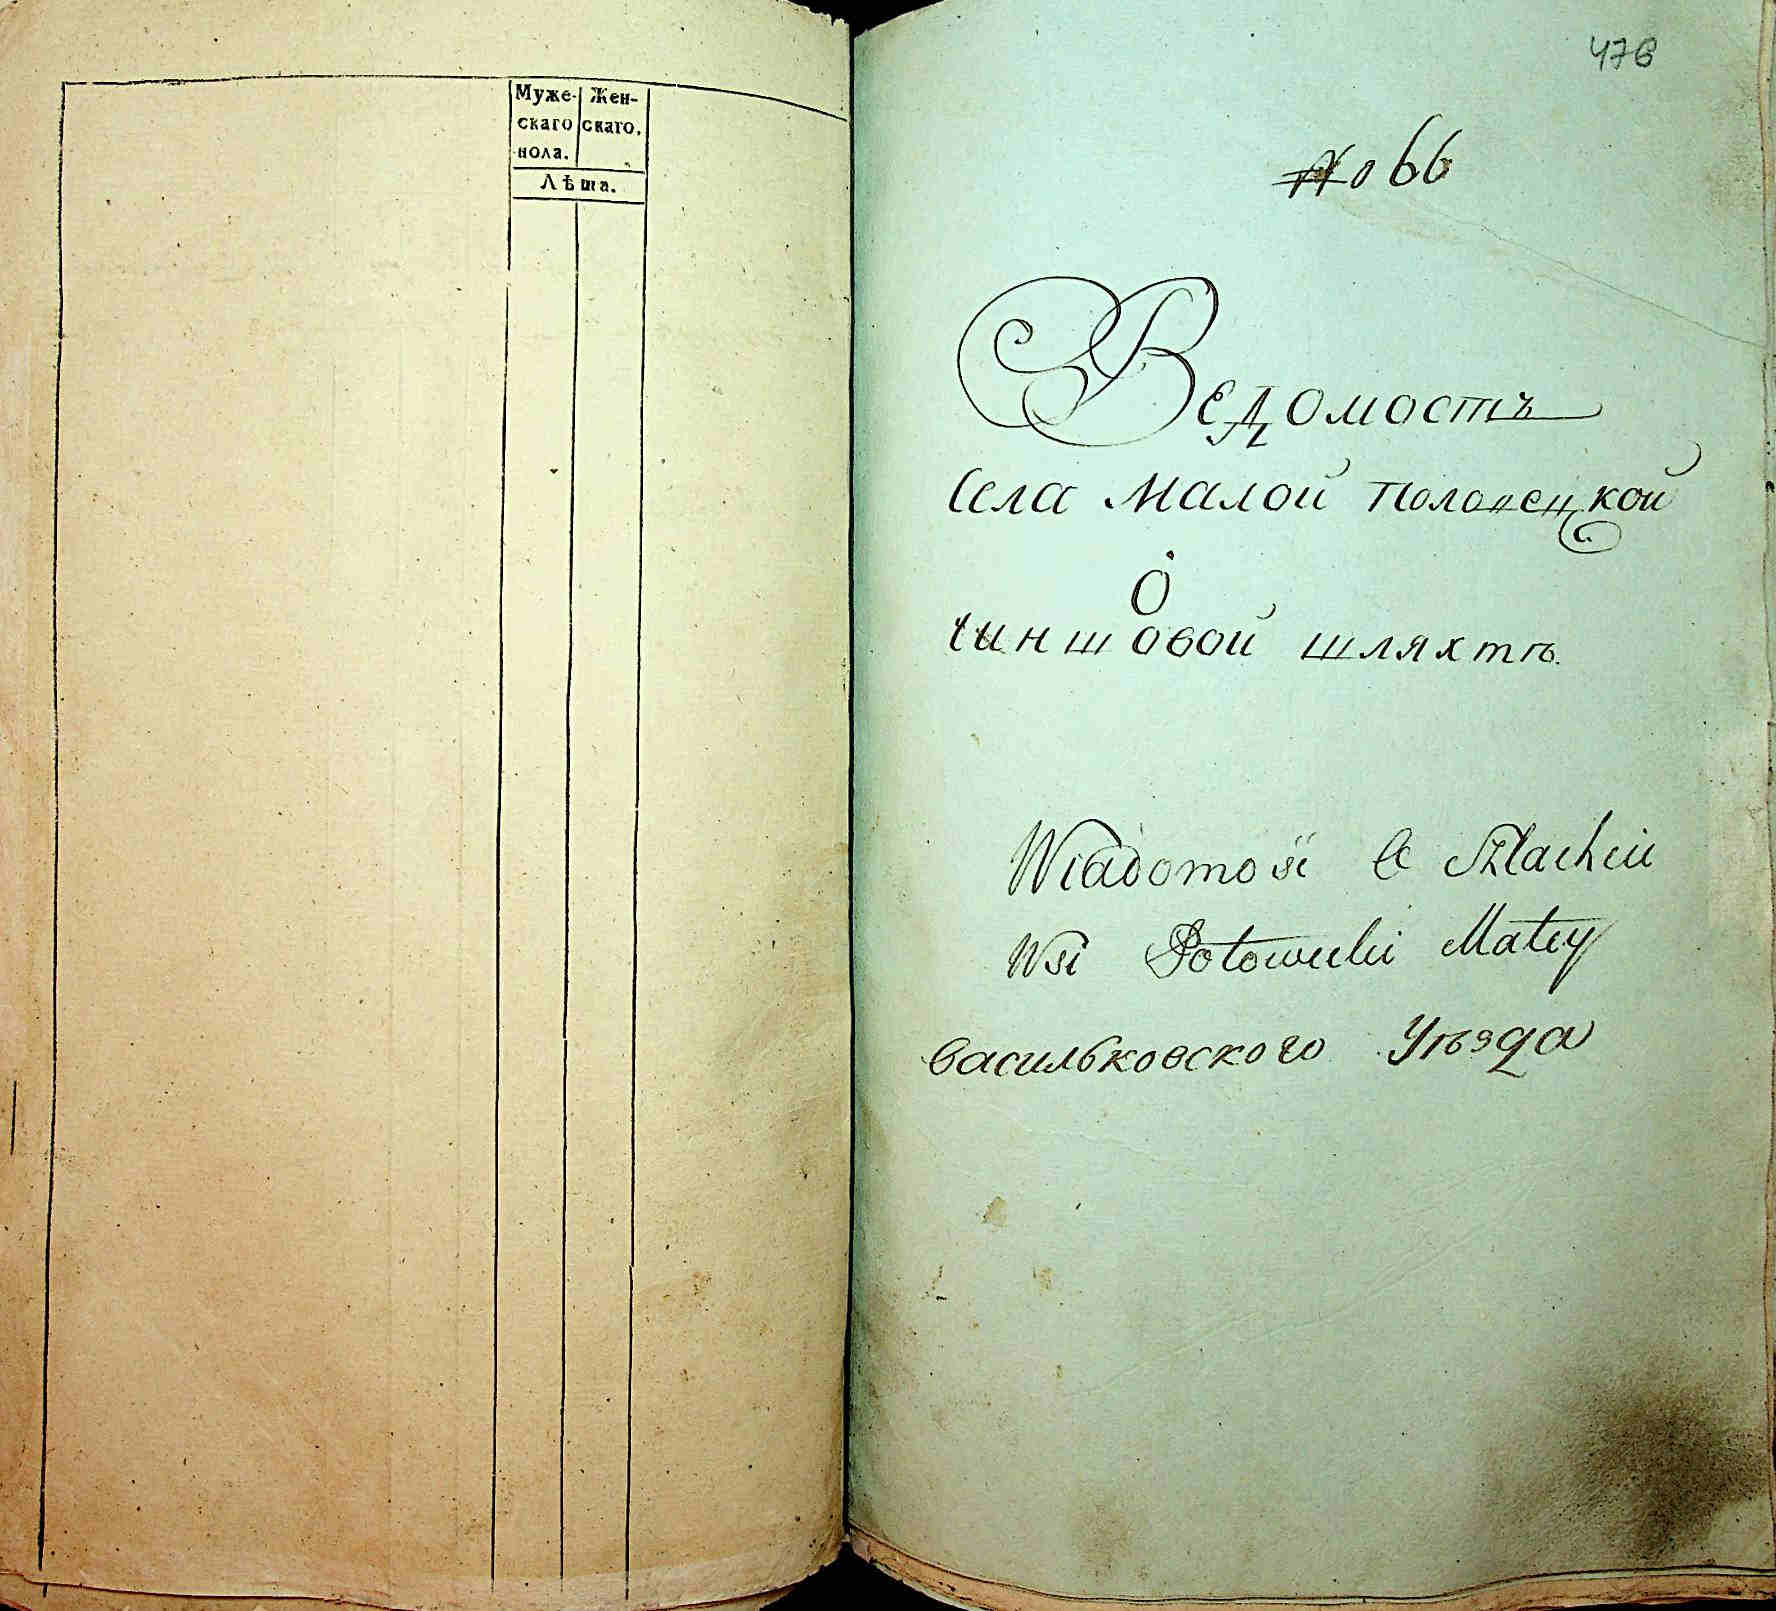 Муже- Жен-
скаго скаго.
пола.
Лѣта.
476
No 66
Ведомостъ
Села Малой Половецкой
О
Чиншовой шляхтѣ.
Wiadomość o Szlachcie
Wsi Połowecki Małey
Васильковского Уѣзда